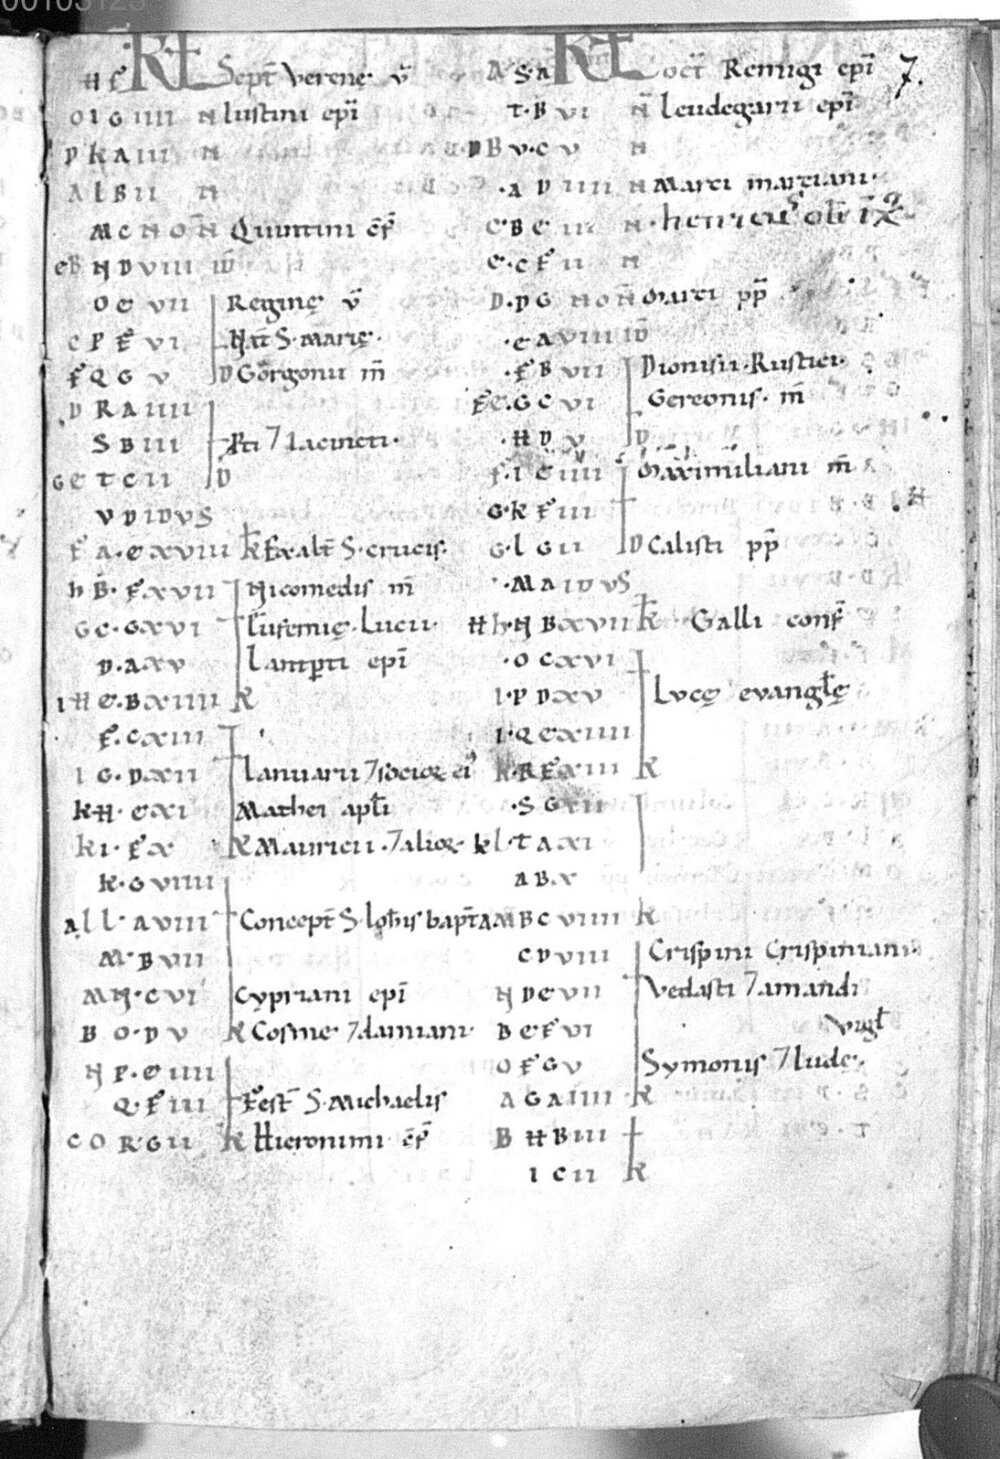 00103128
7.
H F KL Sept Verenę v̄
O I G IIII N Iustini ep̄i
D K A III N
A L B II N
M C NON Quintini c̄f
E B N D VIII ID
O E VII Reginę v̄
C P F VI Nat̄ S. Marię.
F Q G V D Gorgonii m̄
D R A IIII
S B III P̄ti 7 Iacincti.
G E T C II D
V D IDVS
F A. E XVIII K Exalt̄ S. crucis.
h B. F. XVII Nicomedis m̄
G C. G XVI Eufemię. Lucii.
D. A XV Lantp̄ti ep̄i
I H E. B XIIII K
F. C XIII
I G. D XII Ianuarii 7 socioꝝ ei
K H. E XI Mathei apl̄i
K I. F X K Mauricii. 7 alioꝝ
K. G VIIII
A L L. A VIII Concept̄ S. Ioh̄is bapt̄
M. B VII
M N. C VI Cypriani ep̄i
B O. D V K Cosme 7 damiani
N P. E IIII
Q. F III Fest̄ S. Michaelis
C O R. G II K Hieronimi c̄f
A S. A KL Oct̄ Remigi ep̄i
T. B VI N Leudegarii ep̄i
B V. C V N
. A D IIII N Marci martiani.
C B E III N . henricus ob̄
E. C F II N
D. D G NON Marci pp̄
. E A VIII ID
. F B VII Dionisii. Rustici.
F E. G C VI Gereonis. m̄
. H D V D
F. I E IIII Maximiliani m̄
G. K F III
G. L G II D Calisti pp̄
. M A IDVS
H h. N B XVII K Galli conf̄
. O C XVI
I. P D XV Lucę evangl̄ę
I. Q E XIIII
K. R F XIII K
. S G XII
K L. T A XI
A B. X
M B C VIIII K
C D VIII Crispini Crispiniani
N D E VII Vedasti 7 amandi
B E F VI Vigl̄
O F G V Symonis 7 Iudę.
A G A IIII K
B H B III
I C II K